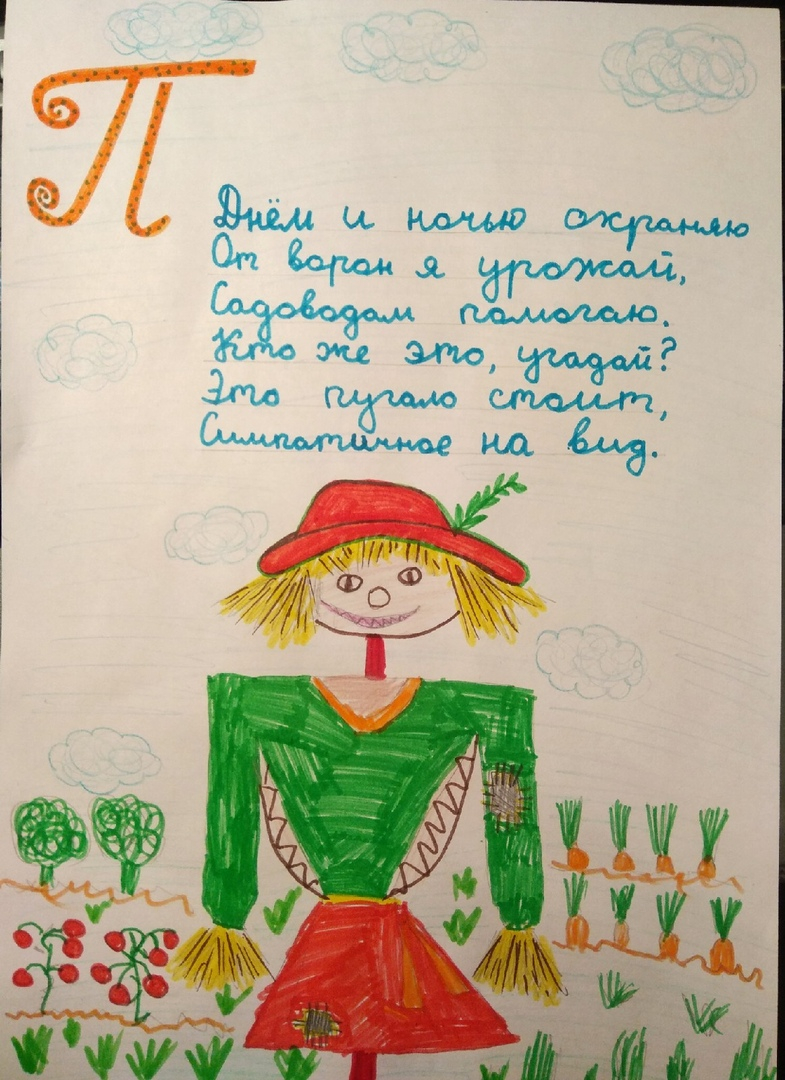 П
Днём и ночью охраняю
От ворон я урожай,
Садоводам помогаю.
Кто же это, угадай?
Это пугало стоит,
Симпатичное на вид.